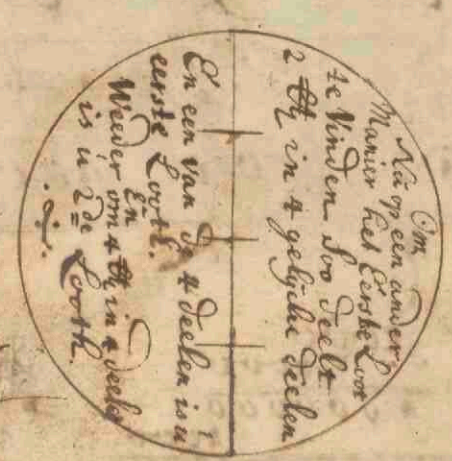 Om
Nu op een ander
Manier het Eerste Loot
te Vinden. Soo deelt
2 ℔ in 4 gelijcke deelen
En een van de 4 deelen is u
eerste Looth.
En
Weeder om 4 ℔ in 4 deelen
is u 2de Looth.